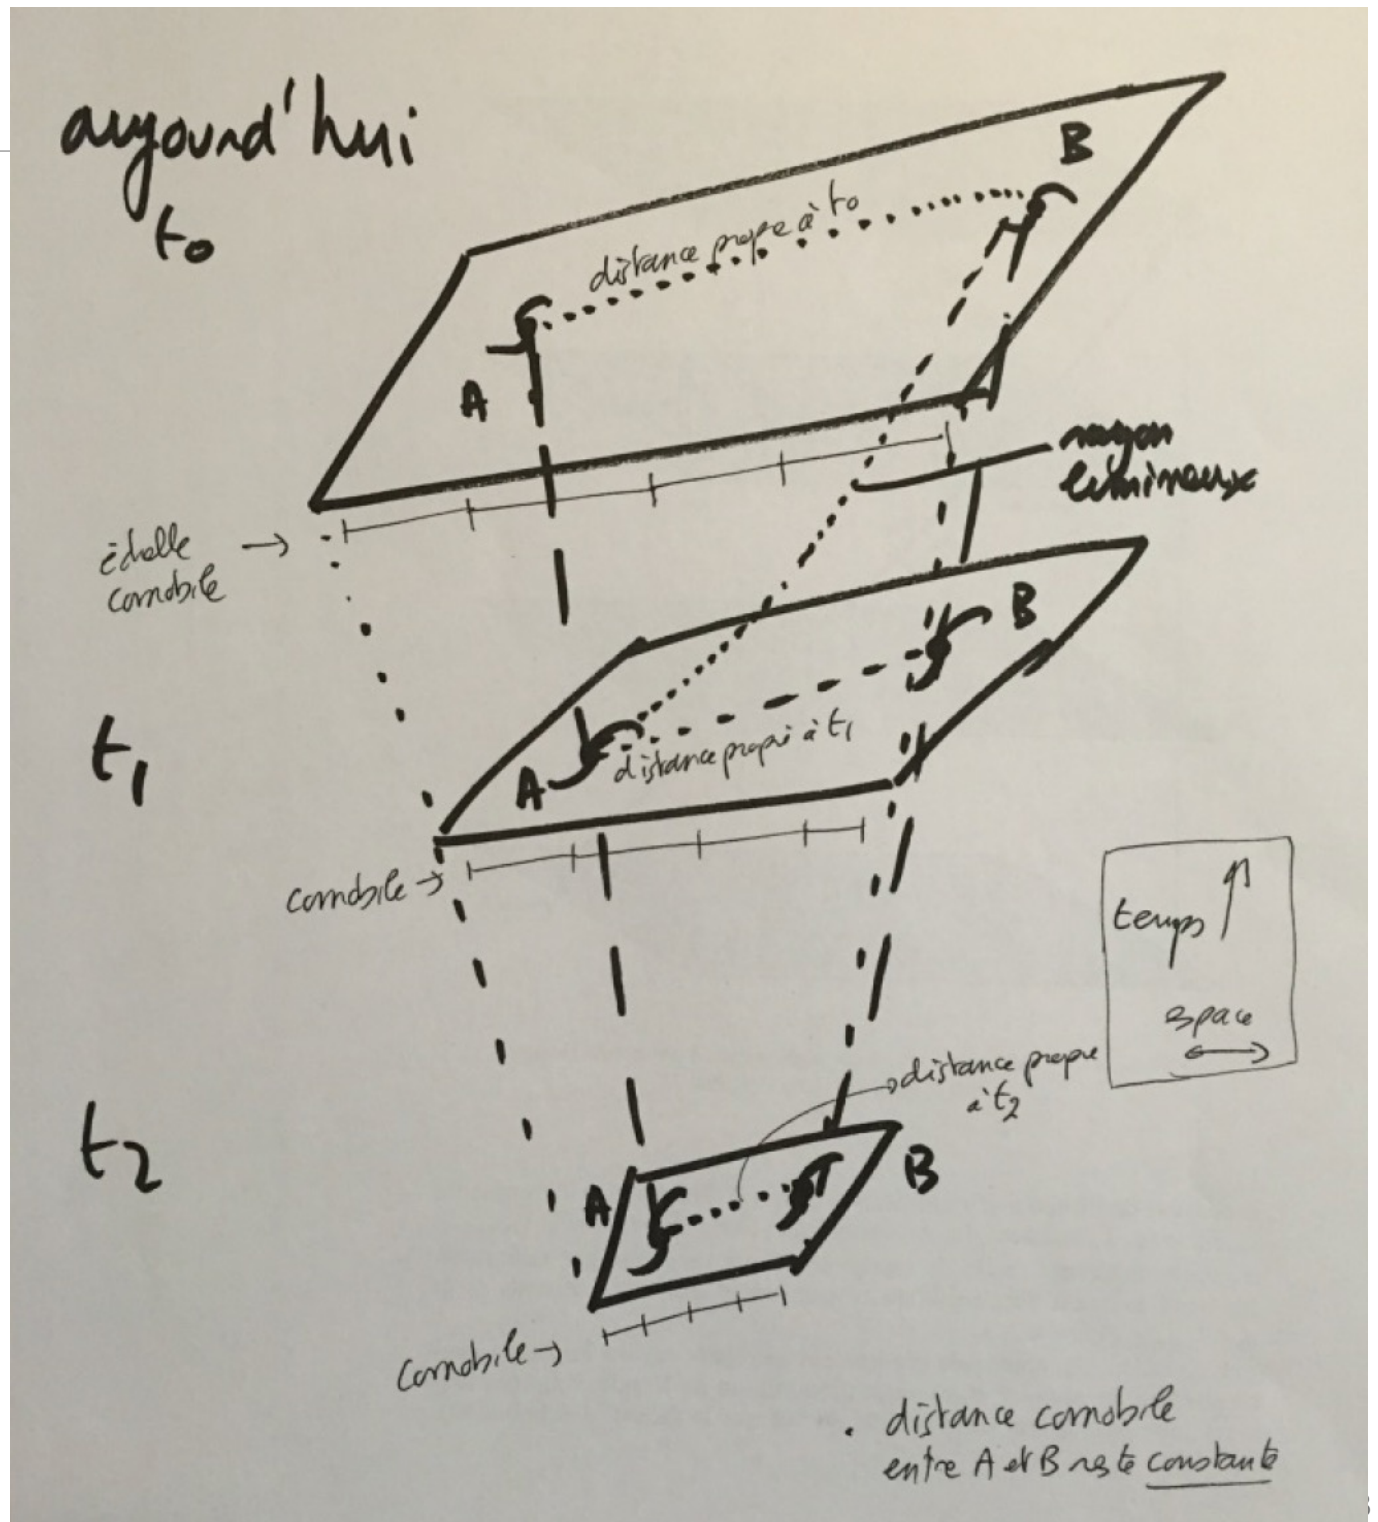 aujourd'hui
t0
B
distance propre à t0
A
rayon
lumineux
échelle
comobile
B
t1
distance propre à t1
A
comobile
temps
espace
distance propre
à t2
t2
A
B
comobile
. distance comobile
entre A et B reste constante